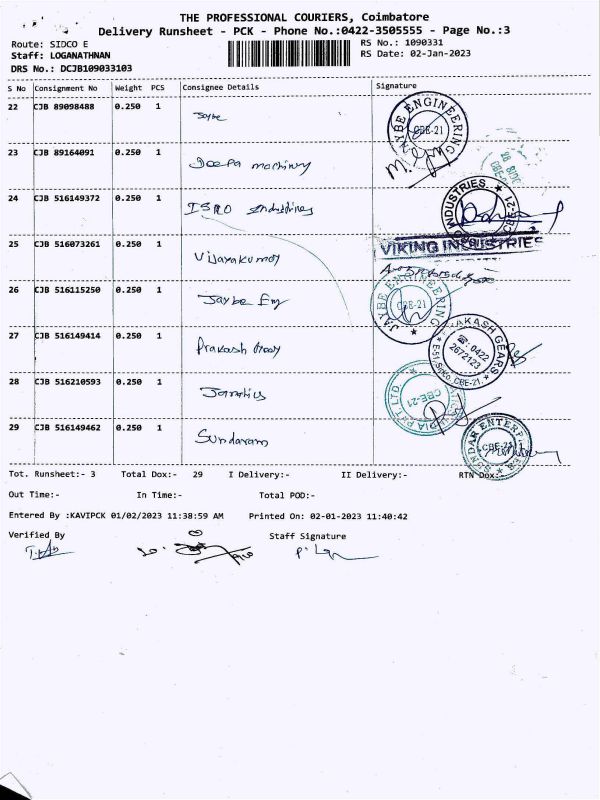 THE PROFESSIONAL COURIERS, Coimbatore
Delivery Runsheet - PCK - Phone No.:0422-3505555 - Page No.:3
Route: SIDCO E
RS No.: 1090331
Staff: LOGANATHNAN
RS Date: 02-Jan-2023
DRS No.: DCJB109033103
S No Consignment No Weight PCS Consignee Details Signature
22 CJB 89098488 0.250 1 Jaybe
JAYBE ENGINEERING CBE-21
23 CJB 89164091 0.250 1 Deepa machinery
24 CJB 516149372 0.250 1 ISRO Industries
INDUSTRIES CBE-21
25 CJB 516073261 0.250 1 Vijayakumar
VIKING INDUSTRIES
26 CJB 516115250 0.250 1 Jaybe Eng
JAYBE ENGINEERING CBE-21
27 CJB 516149414 0.250 1 Prakash
PRAKASH GEARS
☎: 0422
2672123
CBE-21.
28 CJB 516210593 0.250 1
PVT. LTD. CBE-21
29 CJB 516149462 0.250 1 Sundaram
SUNDAR ENTERPRISES CBE-21
Tot. Runsheet:- 3 Total Dox:- 29 I Delivery:- II Delivery:- RTN Dox:-
Out Time:- In Time:- Total POD:-
Entered By :KAVIPCK 01/02/2023 11:38:59 AM Printed On: 02-01-2023 11:40:42
Verified By Staff Signature